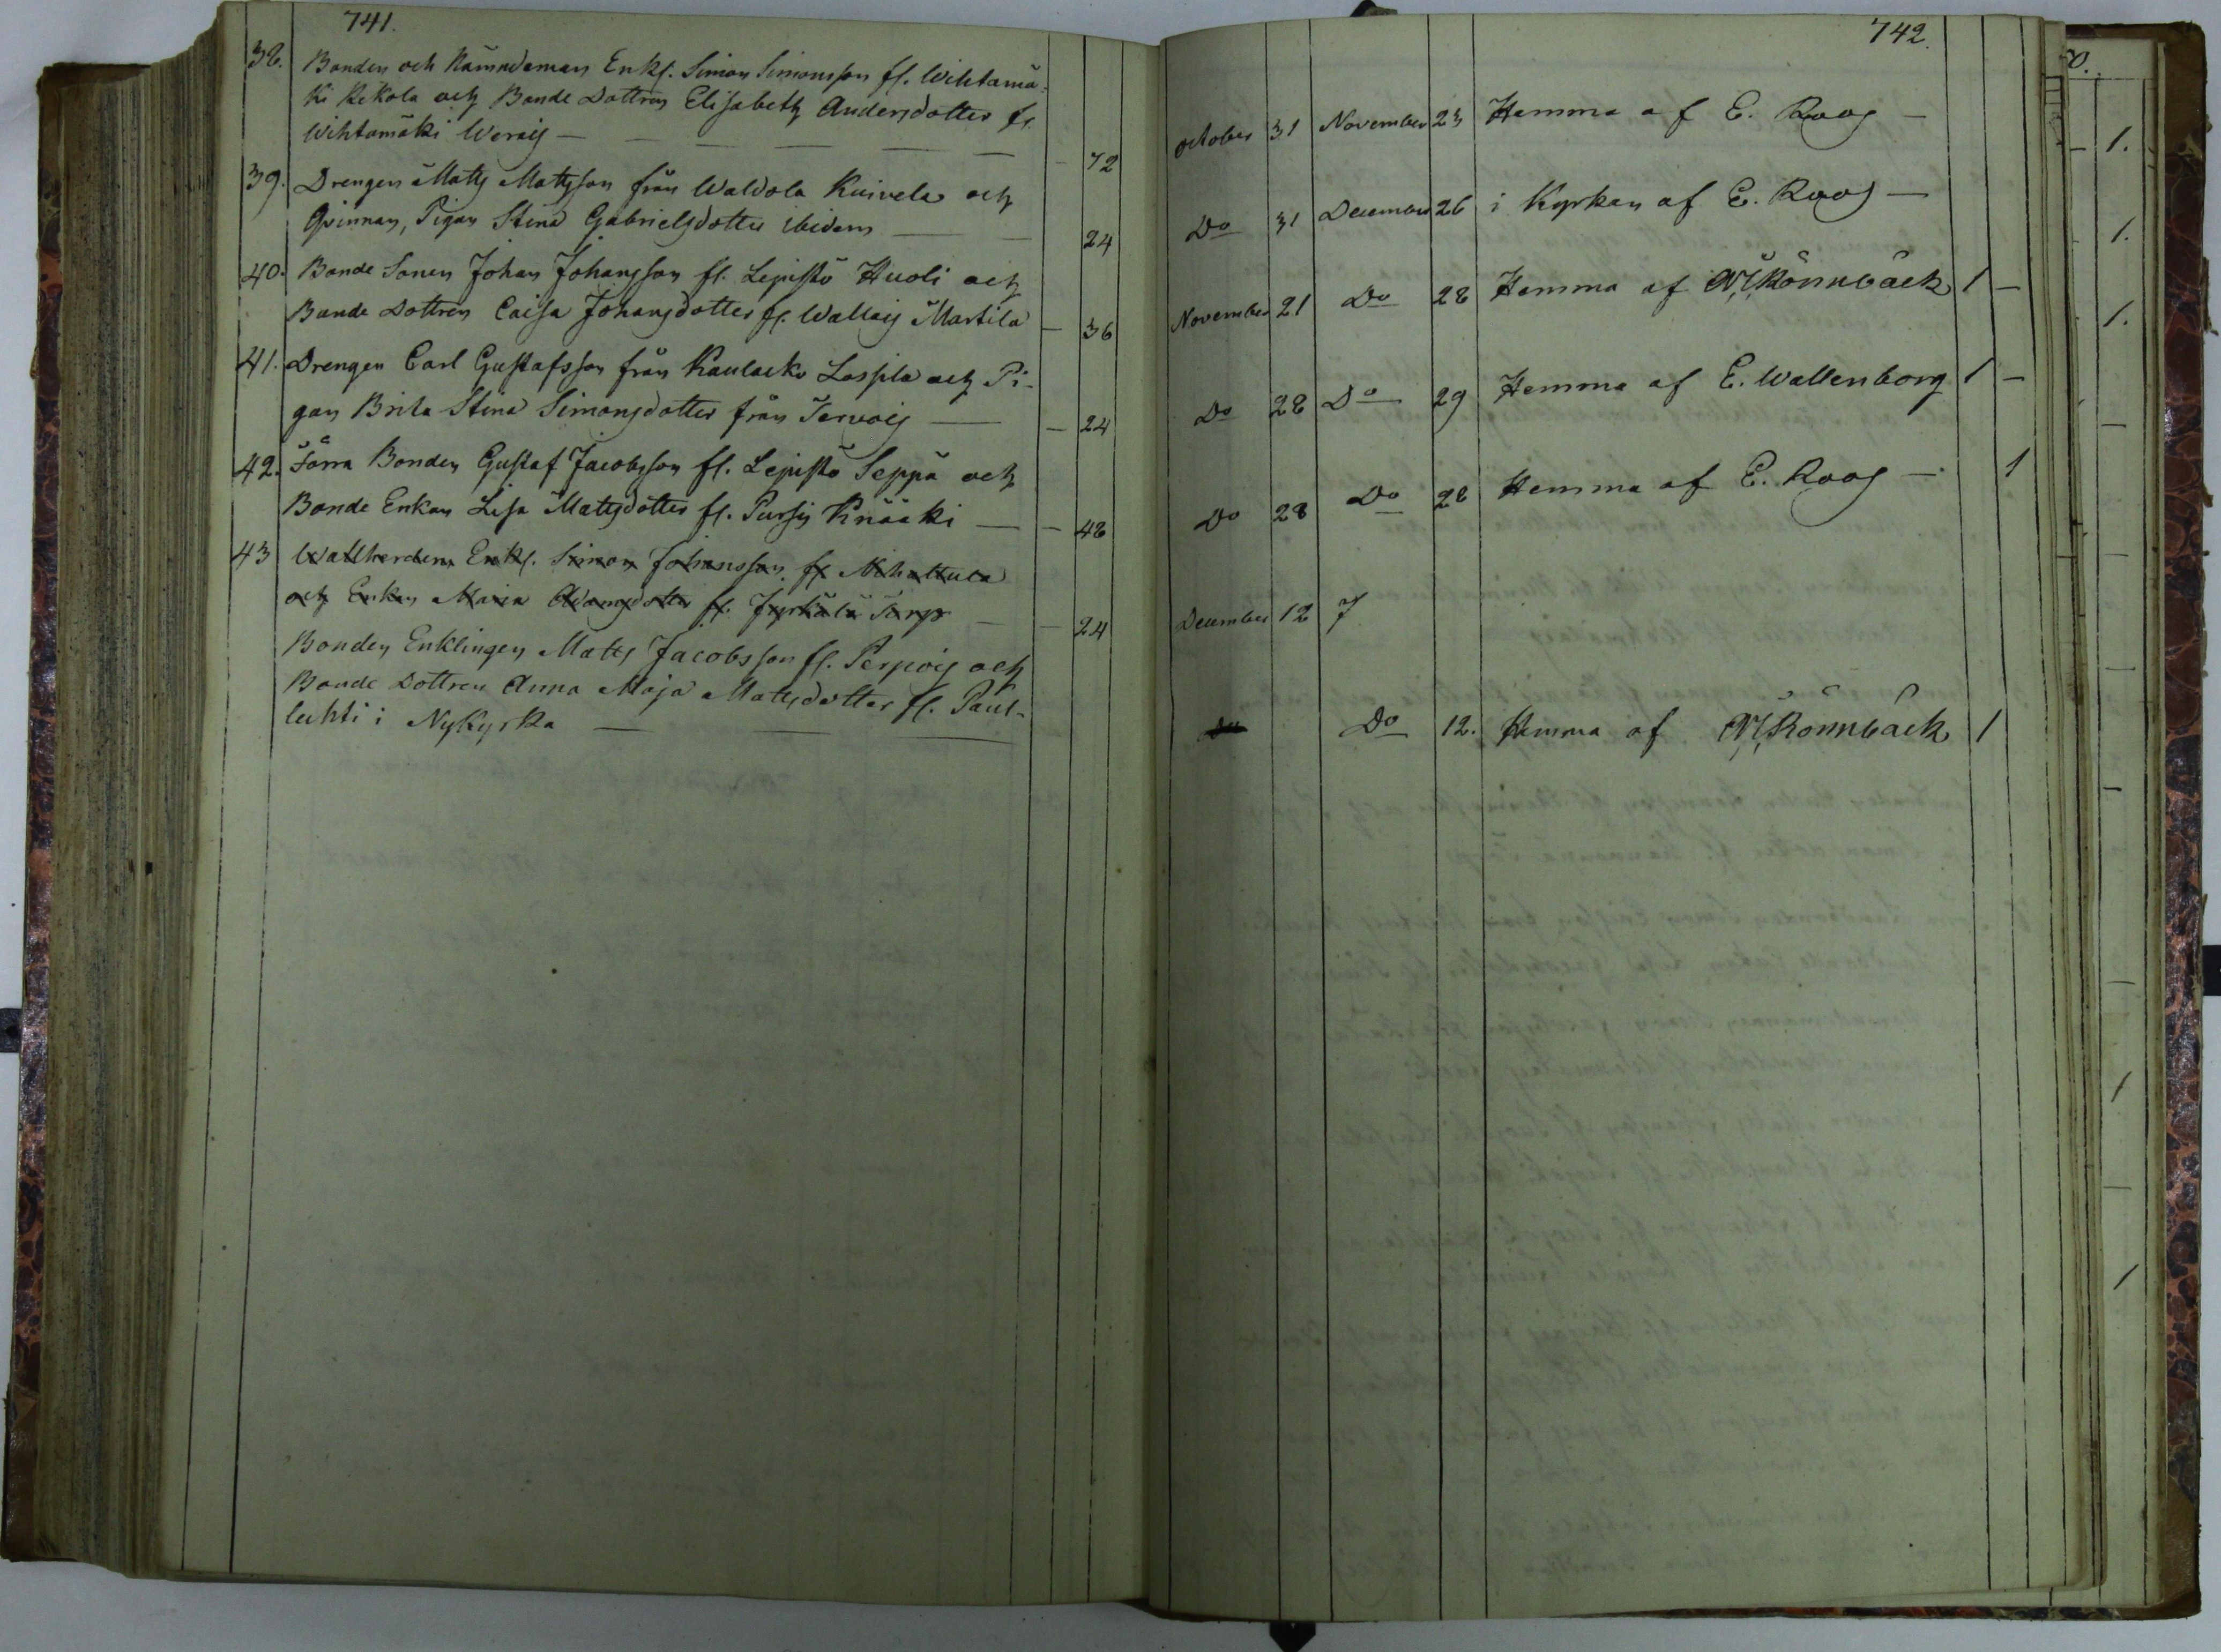 741.
38. Bonden och Nämndeman Enkl. Simon Simonsson fl. Wihtamä-
ki Rekola och Bonde Dottren Elisabeth Andersdotter fl.
Wihtamäki Werais — — — — — 72
39. Drengen Matts Mattsson från Waldola Kuivela och
Qvinnan, Pigan Stina Gabrielsdotter ibidem — — 24
40. Bonde Sonen Johan Johansson fl. Lepistö Huoli och
Bonde Dottren Caisa Johansdotter fl. Wallais Martila — 36
41. Drengen Carl Gustafsson från Kaulacko Lassila och Pi-
gan Brita Stina Simonsdotter från Tervois — — 24
42. Förra Bonden Gustaf Jacobsson fl. Lepistö Seppä och
Bonde Enkan Lisa Mattsdotter fl. Pursis Knääki — — 48
43 Wallherden Enkl. Simon Johansson fl. Mihattula
och Enkan Maria Adamsdotter fl. Jyrkälä Torp — — 24
Bonden Enklingen Matts Jacobsson fl. Perpois och
Bonde Dottren Anna Maja Mattsdotter fl. Paul-
luhti i Nykyrka — — —
742.
October 31 November 23 Hemma af E. Roos —
Do 31 December 26 i Kyrkan af E. Roos —
November 21 Do 28 Hemma af N. Rönnbäck 1 —
Do 28 Do 29 Hemma af E. Wallenborg 1 —
Do 28 Do 28 Hemma af E. Roos — 1
December 12 7
Do Do 12. Hemma af N. Rönnbäck 1
1.
1.
1.
1
1